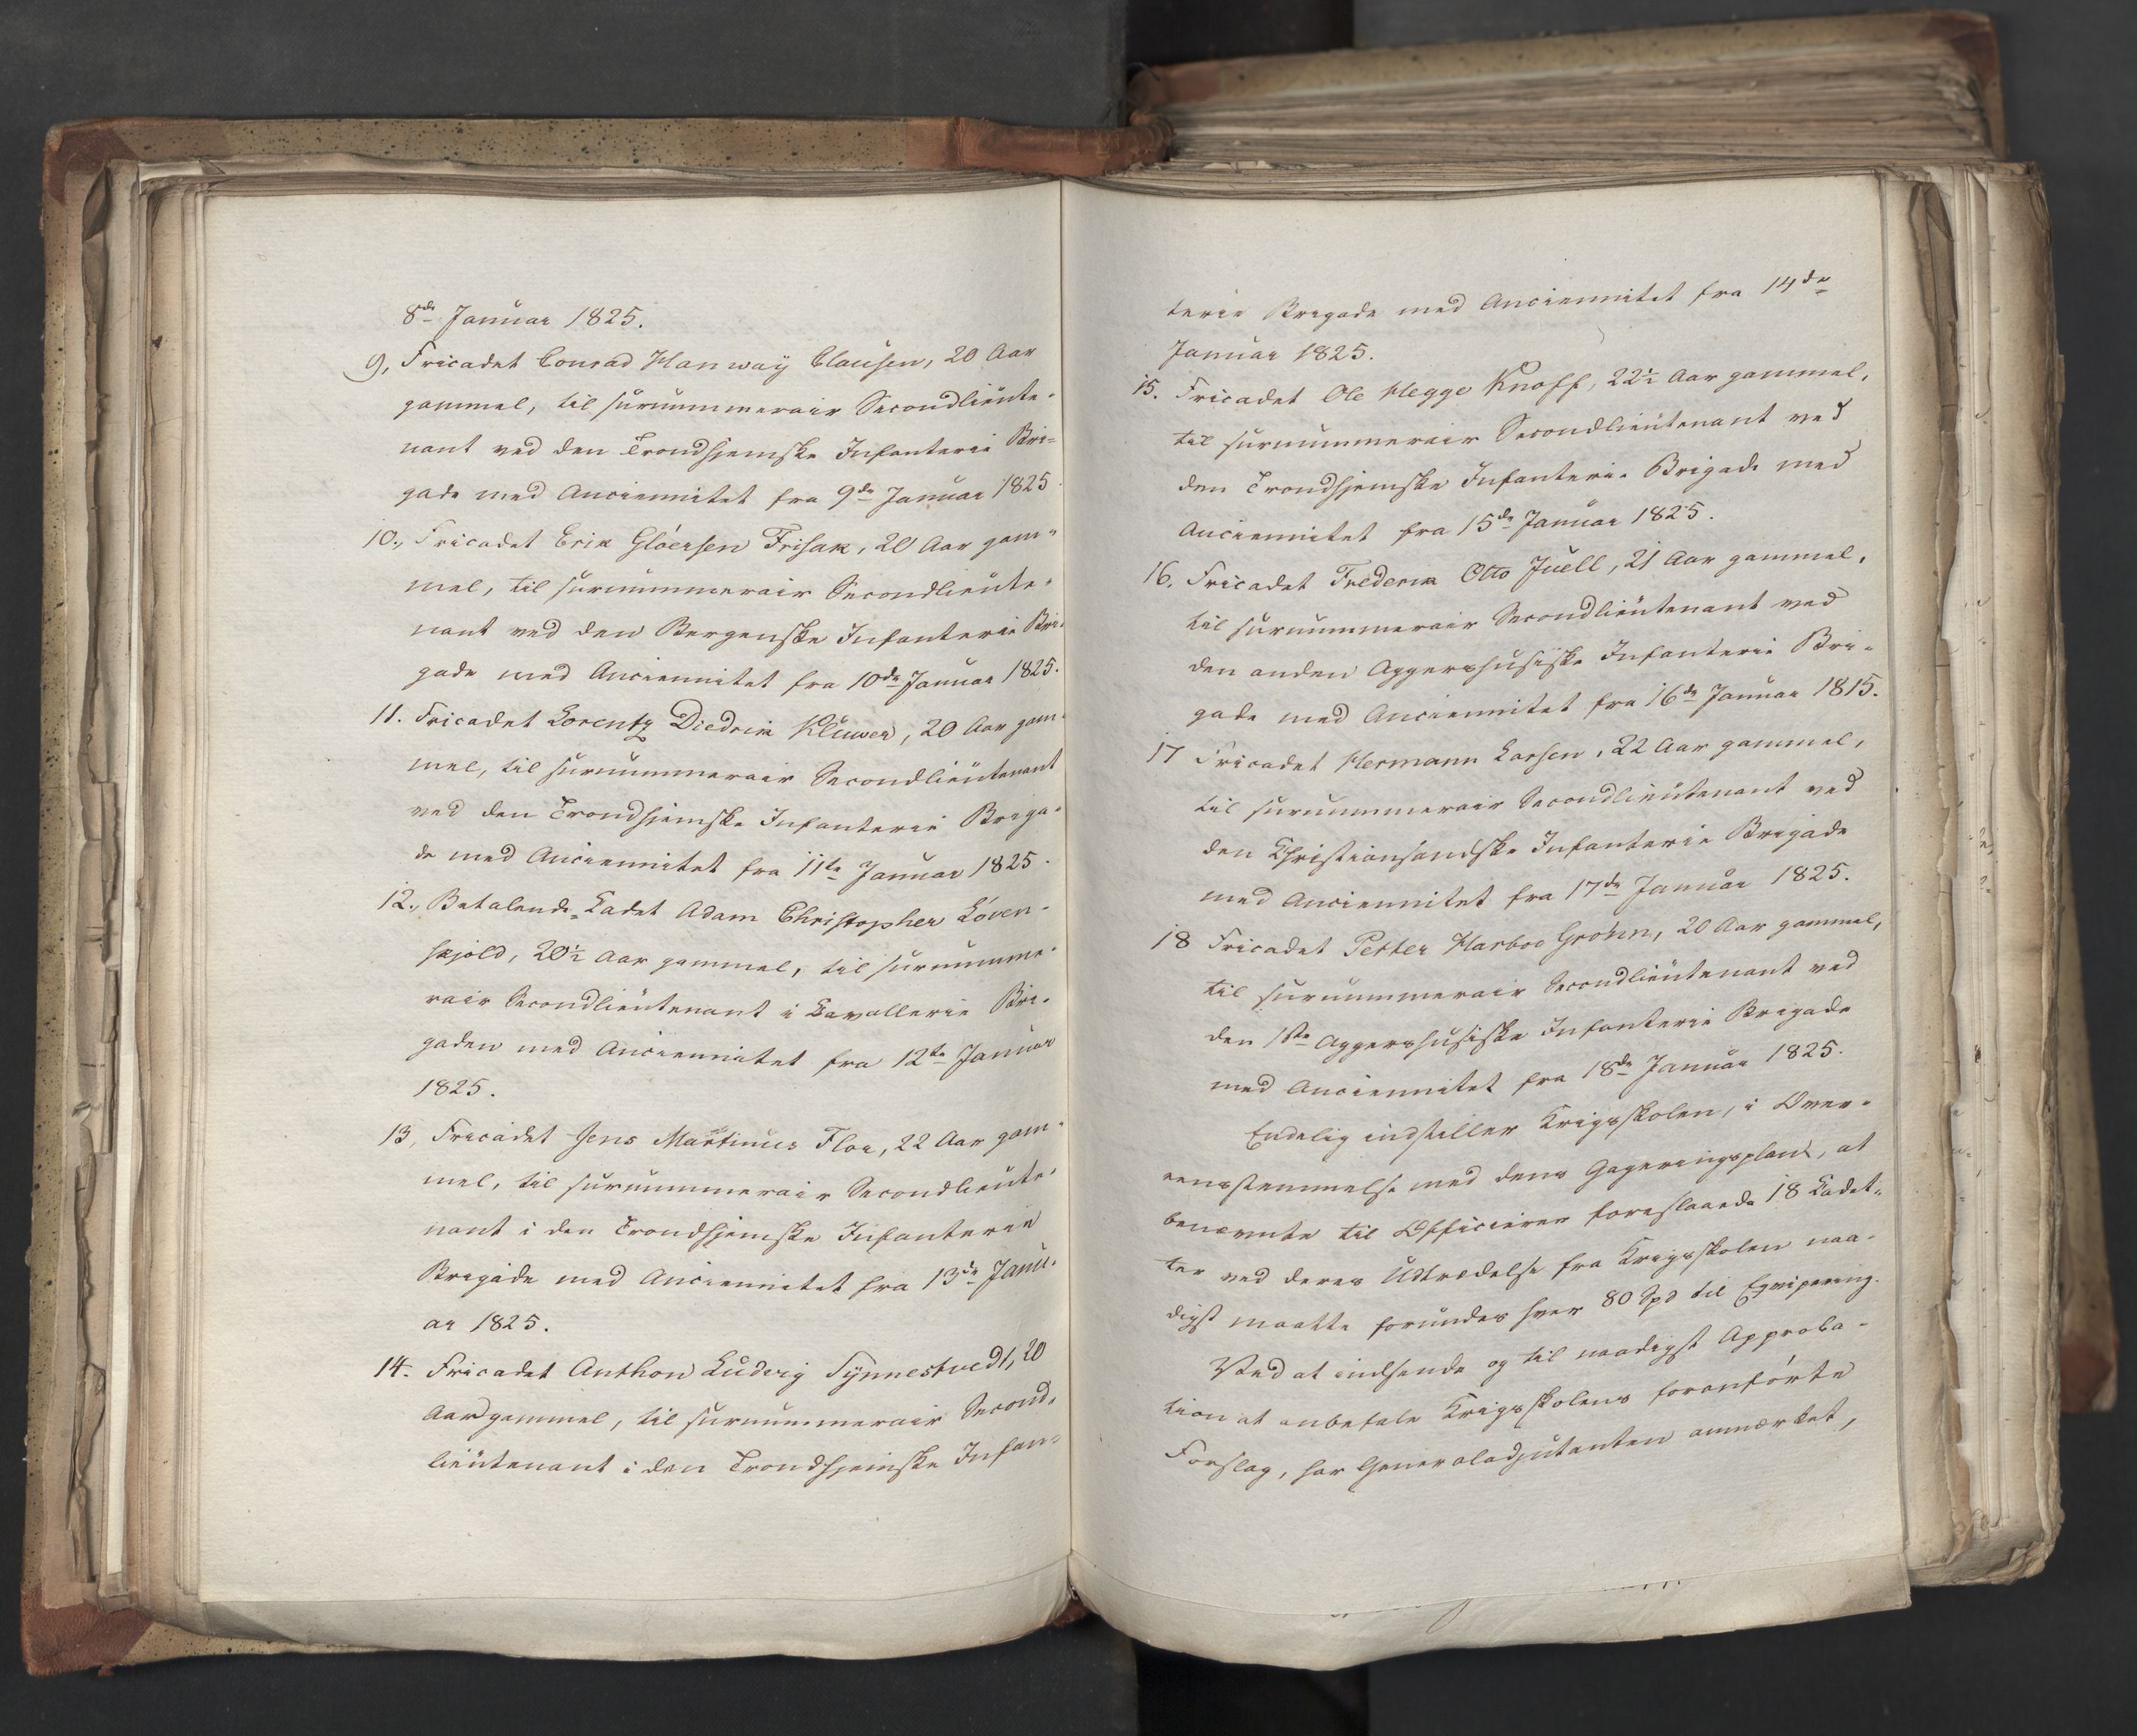 8de Januar 1825.
9, Fricadet Conrad Hanway Clausen, 20 Aar
gammel, til surnummerair Secondlieute-
nant ved den Trondhjemske Infanterie Bri=
gade med Anciennitet fra 9de Januar 1825
10., Fricadet Erik Glöersen Frisak, 20 Aar gam-
mel, til surnummerair Secondlieute-
nant ved den Bergenske Infanterie Bri-
gade med Anciennitet fra 10de Januar 1825.
11. Fricadet Lorentz Diedrik Klüwer, 20 Aar gam-
mel, til surnummerair Secondlieutenant
ved den Trondhjemske Infanterie Briga-
de med Anciennitet fra 11te Januar 1825.
12., Betalende Cadet Adam Christopher Löven-
skjold, 20½ Aar gammel, til surnumme-
rair Secondlieutenant i Cavallerie Bri-
gaden med Anciennitet fra 12te Januar
1825.
13, Fricadet Jens Martinus Flor, 22 Aar gam-
mel, til surnummerair Secondlieute-
nant i den Trondhjemske Infanterie
Brigade med Anciennitet fra 13de Janu-
ar 1825.
14. Fricadet Anthon Ludvig Synnestvedt, 20
Aar gammel, til surnummerair Second-
lieutenant i den Trondhjemske Infan-
terie Brigade med Anciennitet fra 14de
Januar 1825.
15. Fricadet Ole Hegge Knoff, 22½ Aar gammel,
til surnummerair Secondlieutenant ved
den Trondhjemske Infanterie Brigade med
Anciennitet fra 15de Januar 1825.
16. Fricadet Frederik Otto Juell, 21 Aar gammel,
til surnummerair Secondlieutenant ved
den anden Aggershusiske Infanterie Bri-
gade med Anciennitet fra 16de Januar 1815.
17 Fricadet Hermann Larsen, 22 Aar gammel,
til surnummerair Secondlieutenant ved
den Christiansandske Infanterie Brigade
med Anciennitet fra 17de Januar 1825.
18 Fricadet Petter Harboe Gröen, 20 Aar gammel,
til surnummerair Secondlieutenant ved
den 1ste Aggershusiske Infanterie Brigade
med Anciennitet fra 18de Januar 1825.
Endelig indstiller Krigsskolen, i Over-
eensstemmelse med dens Gageringsplan, at
benævnte til Officierer foreslaaede 18 Cadet-
ter ved deres Udtrædelse fra Krigsskolen naa-
digst maatte forundes hver 80 Spd til Eqvipering.
Ved at indsende og til naadigst Approba-
tion at anbefale Krigsskolens foranförte
Forslag, har Generaladjutanten anmærket,